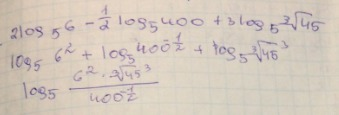 2log₅6 - ½log₅400 + 3log₅∛45
log₅6² + log₅400^(-½) + log₅∛45³
log₅ (6² · ∛45³)/(400^(-½))